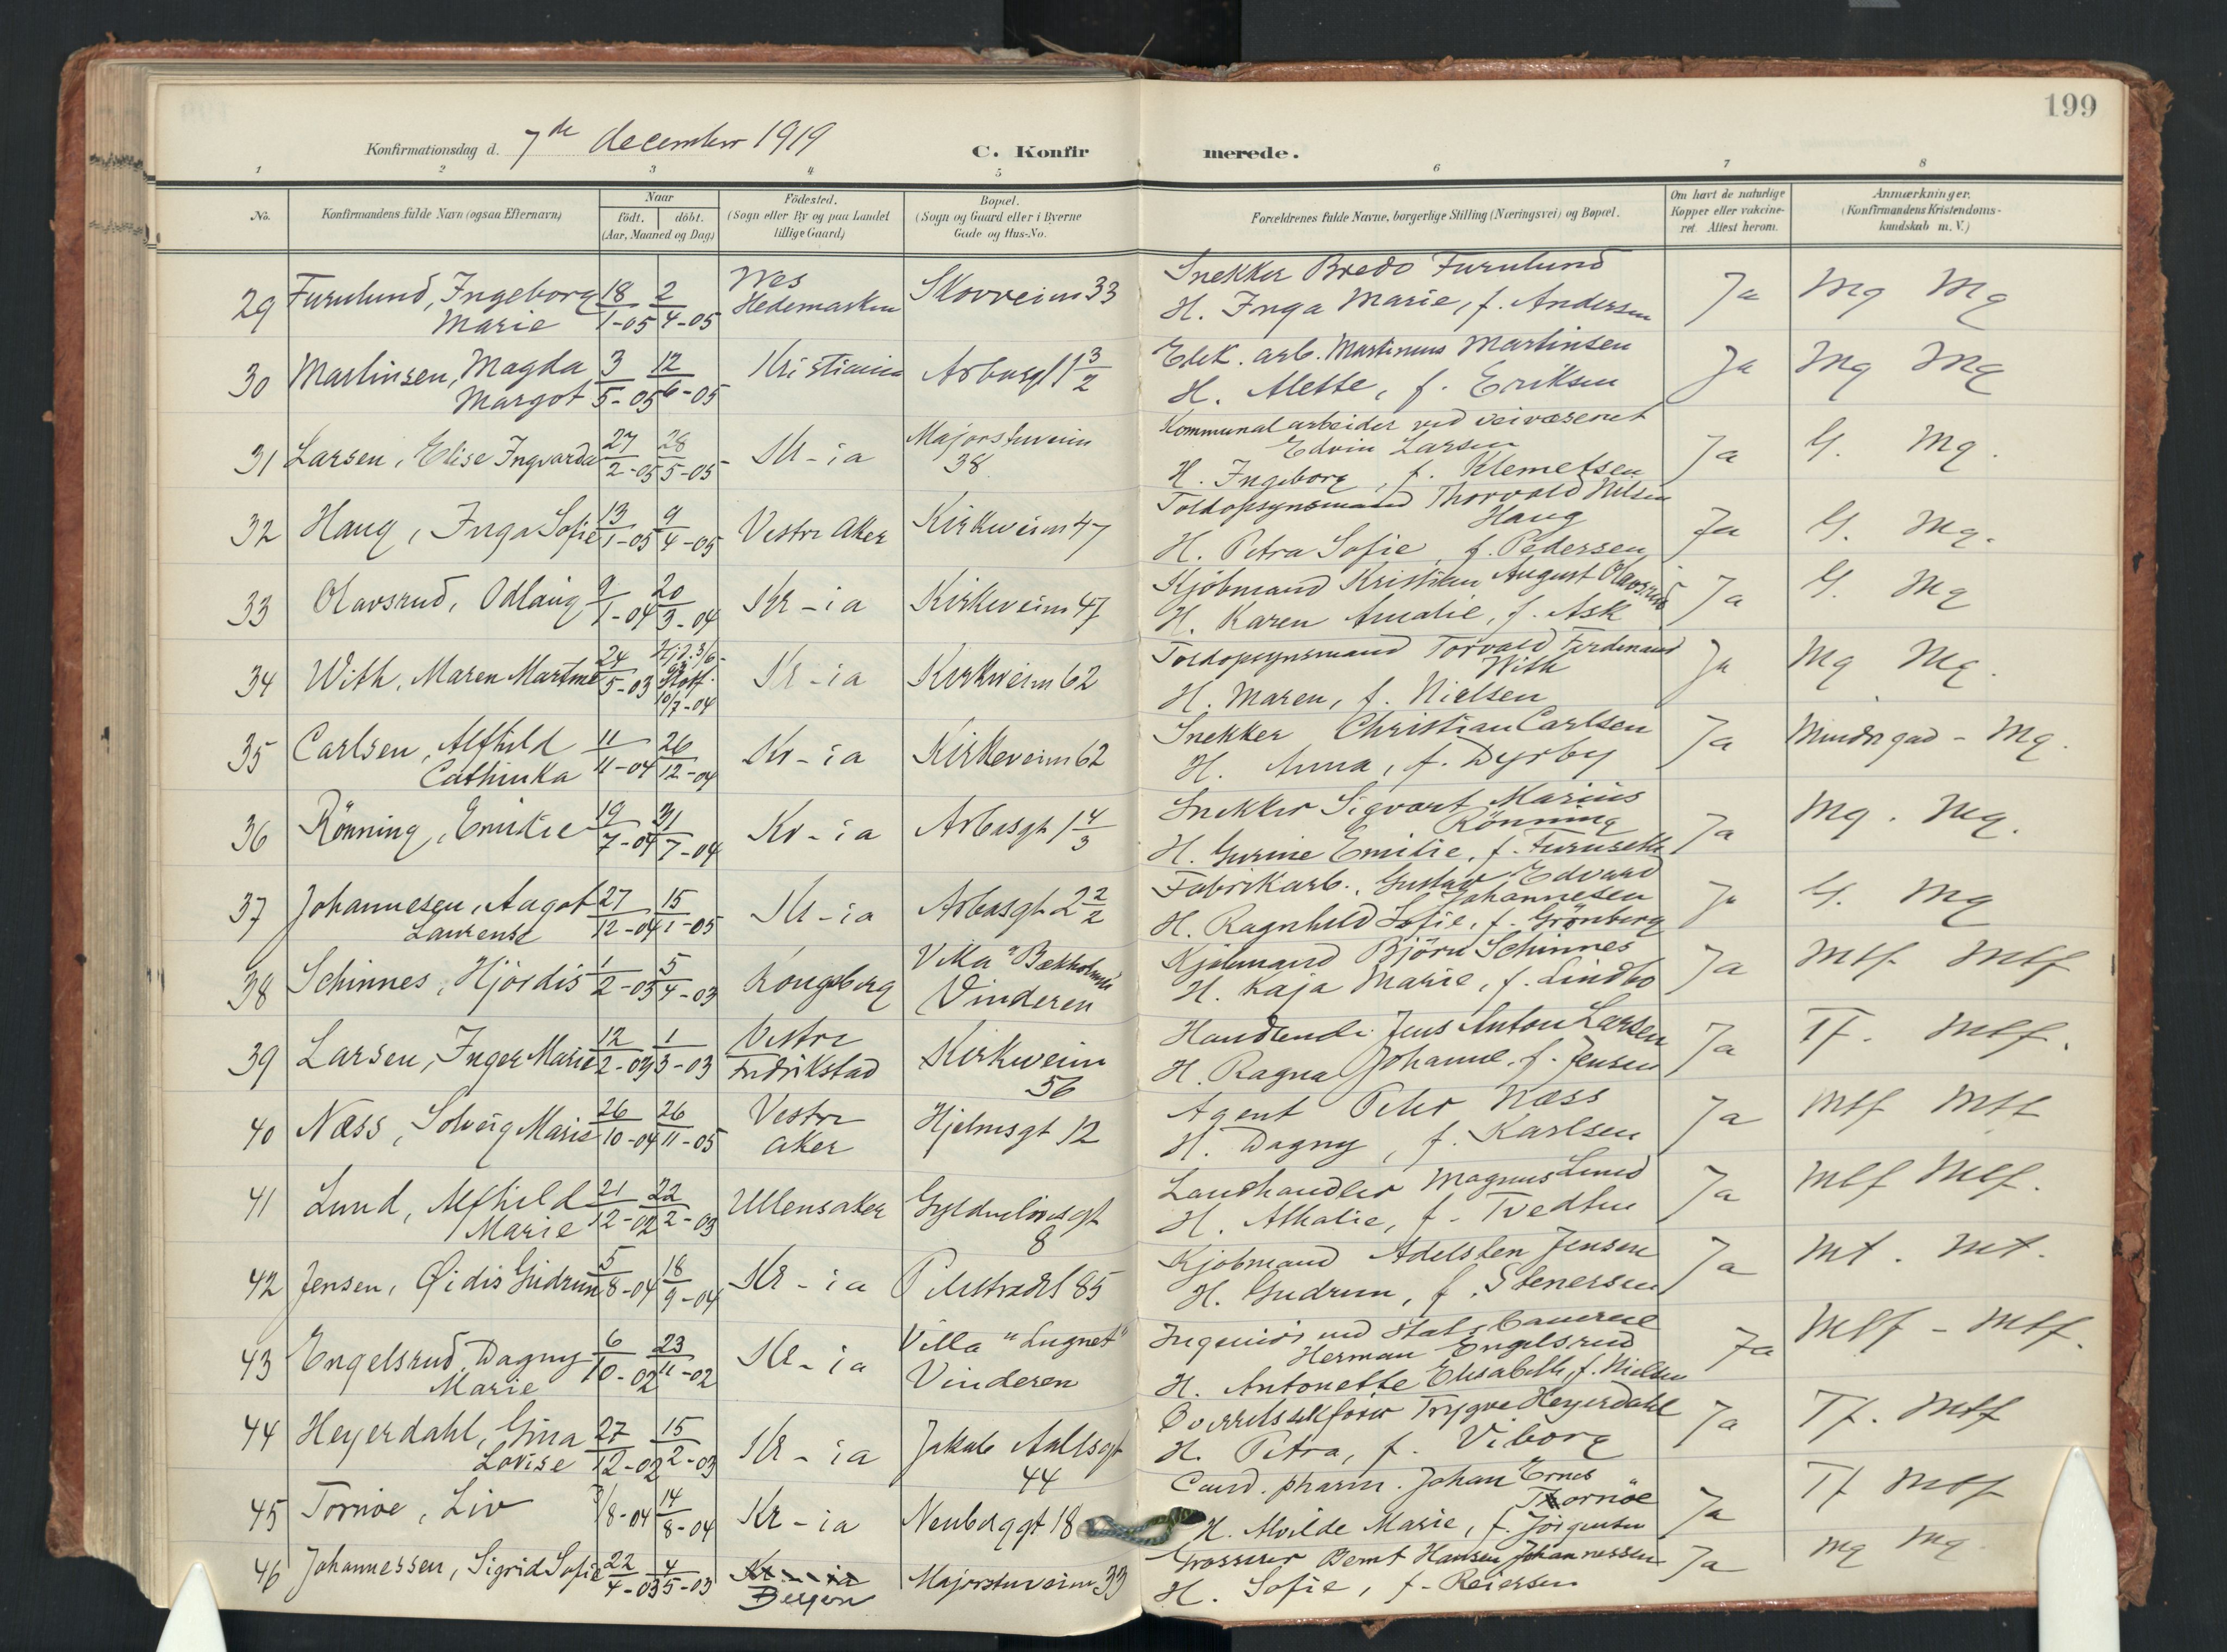 199
Konfirmationsdag d. 7de december 1919
C. Konfirmerede.
1 2 3 4 5 6 7 8
No.
Konfirmandens fulde Navn (ogsaa Efternavn)
Naar
födt. döbt.
(Aar, Maaned og Dag)
Födested.
(Sogn eller By og paa Landet
tillige Gaard)
Bopæl.
(Sogn og Gaard eller i Byerne
Gade og Hus-No.
Forældrenes fulde Navne, borgerlige Stilling (Næringsvei) og Bopæl.
Om havt de naturlige
Kopper eller vakcine-
ret. Attest herom.
Anmærkninger.
(Konfirmandens Kristendoms-
kundskab m. V.)
29 Furulund, Ingeborg Marie 18/1-05 2/4-05 Nes Hedemarken Skovveien 33
Snekker Bredo Furulund
H. Inga Marie, f. Andersen
Ja Mg Mg
30 Martinsen, Magda Margot 3/5-05 12/6-05 Kristiania Arbusgt 1 3/2
Elek. arb. Martinus Martinsen
H. Alette, f. Eriksen
Ja Mg Mg
31 Larsen, Elise Ingvarda 27/2-05 28/5-05 Kr-ia Majorstuveien 38
Kommunalarbeider ved veivæsenet
Edvin Larsen
H. Ingeborg, f. Klemetsen
Ja G. Mg.
32 Haug, Inga Sofie 13/1-05 9/4-05 Vestre Aker Kirkeveien 47
Toldopsynsmand Thorvald Nilsen
Haug
H. Petra Sofie, f. Pedersen
Ja G. Mg.
33 Olavsrud, Odlaug 9/1-04 20/3-04 Kr-ia Kirkeveien 47
Kjöbmand Kristian August Olavsrud
H. Karen Amalie, f. Ask
Ja G. Mg
34 With, Maren Martine 24/5-03 Hjd. 3/6- Stadf. 10/7-04 Kr-ia Kirkeveien 62
Toldopsynsmand Torvald Ferdinand
With
H. Maren, f. Nielsen
Ja Mg Mg.
35 Carlsen, Alfhild Cathinka 11/11-04 26/12-04 Kr-ia Kirkeveien 62
Snekker Christian Carlsen
H. Anna, f. Dyrby
Ja Mindre god - Mg.
36 Rönning, Emilie 19/7-04 31/7-04 Kr-ia Arbusgt 1 4/3
Snekker Sigvart Marius
Rönning
H. Gurine Emilie, f. Furuseth
Ja Mg. Mg.
37 Johannesen, Aagot Laurense 27/12-04 15/1-05 Kr-ia Arbusgt 2 2/2
Fabrikarb. Gustav Edvard
Johannesen
H. Ragnhild Sofie, f. Grönberg
Ja G. Mg
38 Schinnes, Hjördis 1/2-03 5/4-03 Kongsberg Villa "Bækkelund" Vinderen
Kjöbmand Björn Schinnes
H. Kaja Marie, f. Lindbo
Ja Mtf Mtf
39 Larsen, Inger Marie 12/2-03 1/3-03 Vestre Fredrikstad Kirkeveien 56
Handlende Jens Anton Larsen
H. Ragna Johanne, f. Jensen
Ja Tf. Mtf.
40 Næss, Solveig Marie 26/10-04 26/11-05 Vestre Aker Hjelmsgt 12
Agent Peter Næss
H. Dagny, f. Karlsen
Ja Mtf Mtf
41 Lund, Alfhild Marie 21/12-02 22/2-03 Ullensaker Gyldenlövesgt 8
Landhandler Magnus Lund
H. Athalie, f. Tvedten
Ja Mtf Mtf.
42 Jensen, Øidis Gudrun 5/8-04 18/9-04 Kr-ia Pilestrædet 85
Kjöbmand Adelsten Jensen
H. Gudrun, f. Stenersen
Ja Mt. Mt.
43 Engelsrud, Dagny Marie 6/10-02 23/11-02 Kr-ia Villa "Lugnet" Vinderen
Ingeniör ved Statsbanerne
Herman Engelsrud
H. Antonette Elisabeth, f. Nielsen
Ja Mtf - Mtf.
44 Heyerdahl, Gina Lovise 27/12-02 15/2-03 Kr-ia Jakob Aallsgt 44
Overretssakförer Trygve Heyerdahl
H. Petra, f. Viborg
Ja Tf. Mtf
45 Tornöe, Liv 3/8-04 14/8-04 Kr-ia Neuberggt 18
Cand. pharm. Johan Ernst
Tornöe
H. Alvilde Marie, f. Jörgensen
Ja Tf Mtf
46 Johannessen, Sigrid Sofie 22/4-03 4/5-03 Kr-ia Bergen Majorstuveien 33
Grosserer Bernt Hansen Johannessen
H. Sofie, f. Reiersen
Ja Mg Mg